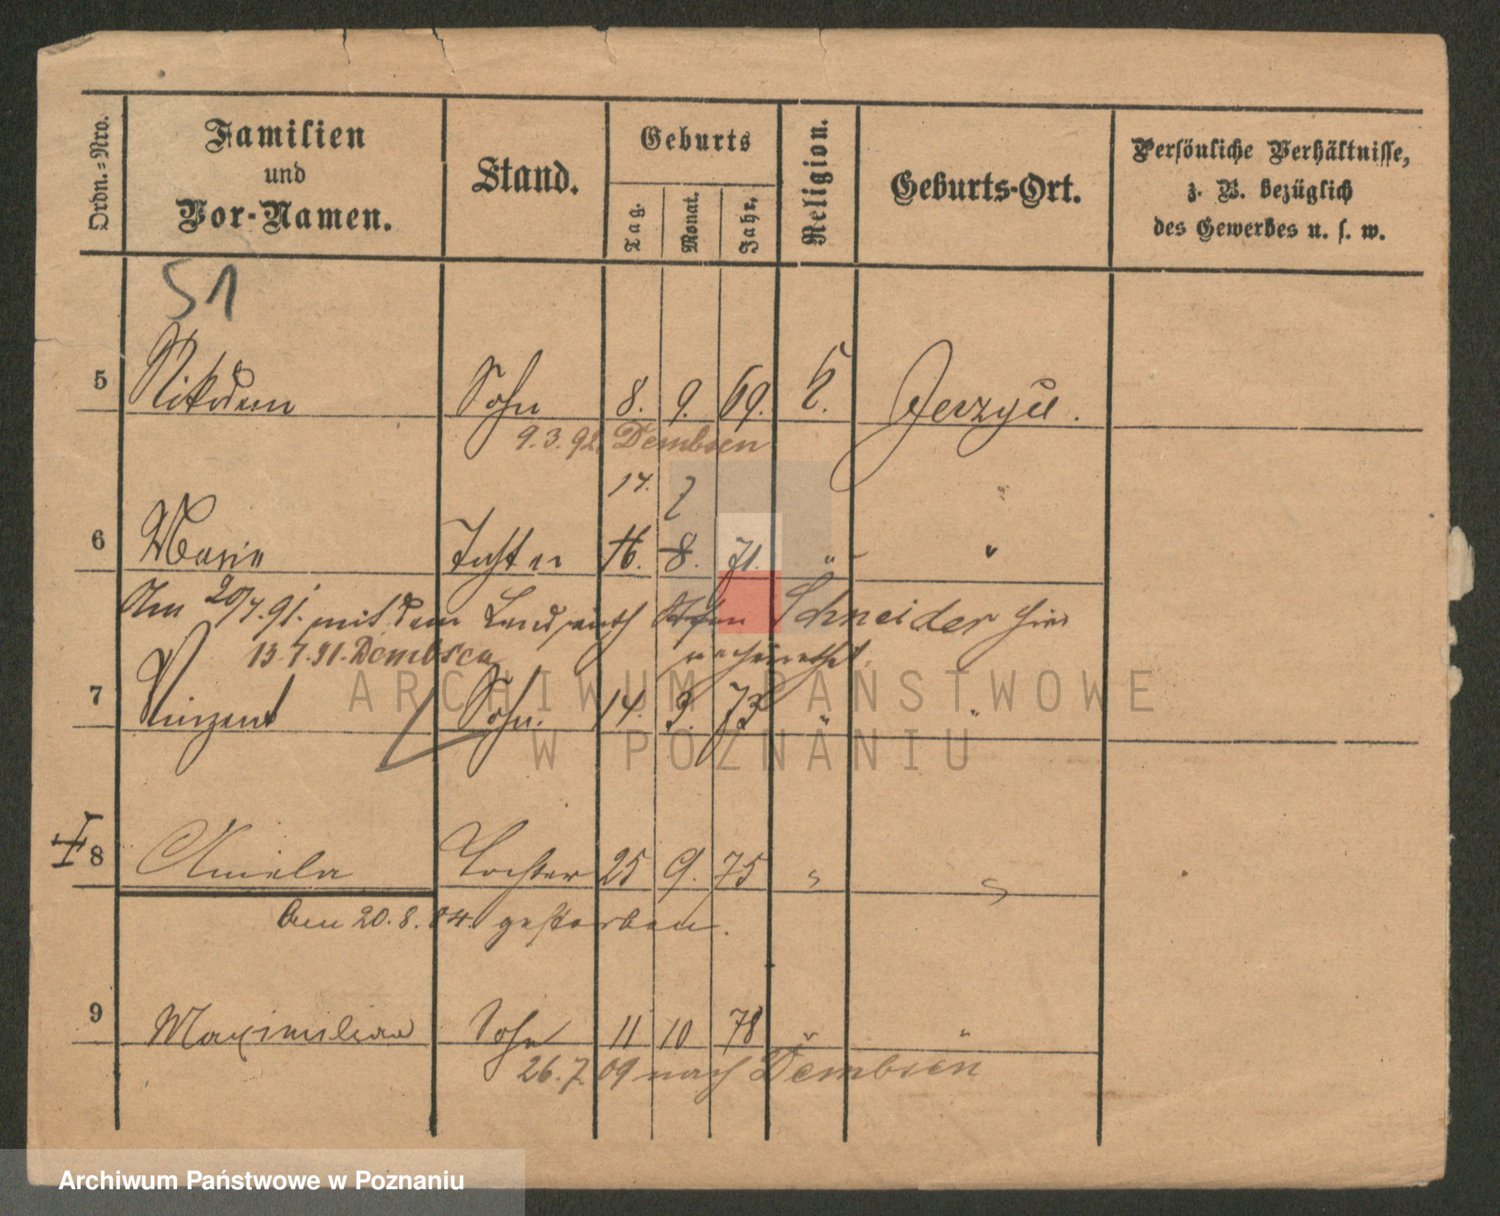 Ordn.=Nro.
Familien
und
Vor-Namen.
Stand.
Geburts
Tag.
Monat.
Jahr.
Religion.
Geburts-Ort.
Persönliche Verhältnisse,
z. B. bezüglich
des Gewerbes u. s. w.
51
5 Nikodem Sohn 8. 9. 69. k. Jerzyce.
9.3.92. Dembsen
17. 7 "
6 Marie Tochter 16. 8. 71. " "
Am 20/7.91. mit dem Schneider hier
verheirathet
13.7.91. Dembsen
7 Vinzent Sohn. 14. 3. 73 " "
8 Aniela Tochter 25 9. 75 " "
Am 20.8.04. gestorben.
9 Maximilian Sohn 11 10 78 " "
26.7.09 nach Dembsen
ARCHIWUM PAŃSTWOWE
W POZNANIU
Archiwum Państwowe w Poznaniu